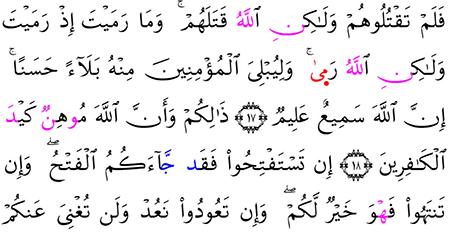 فَلَمْ تَقْتُلُوهُمْ وَلَٰكِنِ ٱللَّهُ قَتَلَهُمْ ۚ وَمَا رَمَيْتَ إِذْ رَمَيْتَ
وَلَٰكِنِ ٱللَّهُ رَمىٰ ۚ وَلِيُبْلِىَ ٱلْمُؤْمِنِينَ مِنْهُ بَلَآءً حَسَنًا ۚ
إِنَّ ٱللَّهَ سَمِيعٌ عَلِيمٌ ﴿١٧﴾ ذَٰلِكُمْ وَأَنَّ ٱللَّهَ مُوهِنٌ كَيْدَ
ٱلْكَٰفِرِينَ ﴿١٨﴾ إِن تَسْتَفْتِحُوا۟ فَقَد جَّآءَكُمُ ٱلْفَتْحُ ۖ وَإِن
تَنتَهُوا۟ فَهْوَ خَيْرٌ لَّكُمْ ۖ وَإِن تَعُودُوا۟ نَعُدْ وَلَن تُغْنِىَ عَنكُمْ